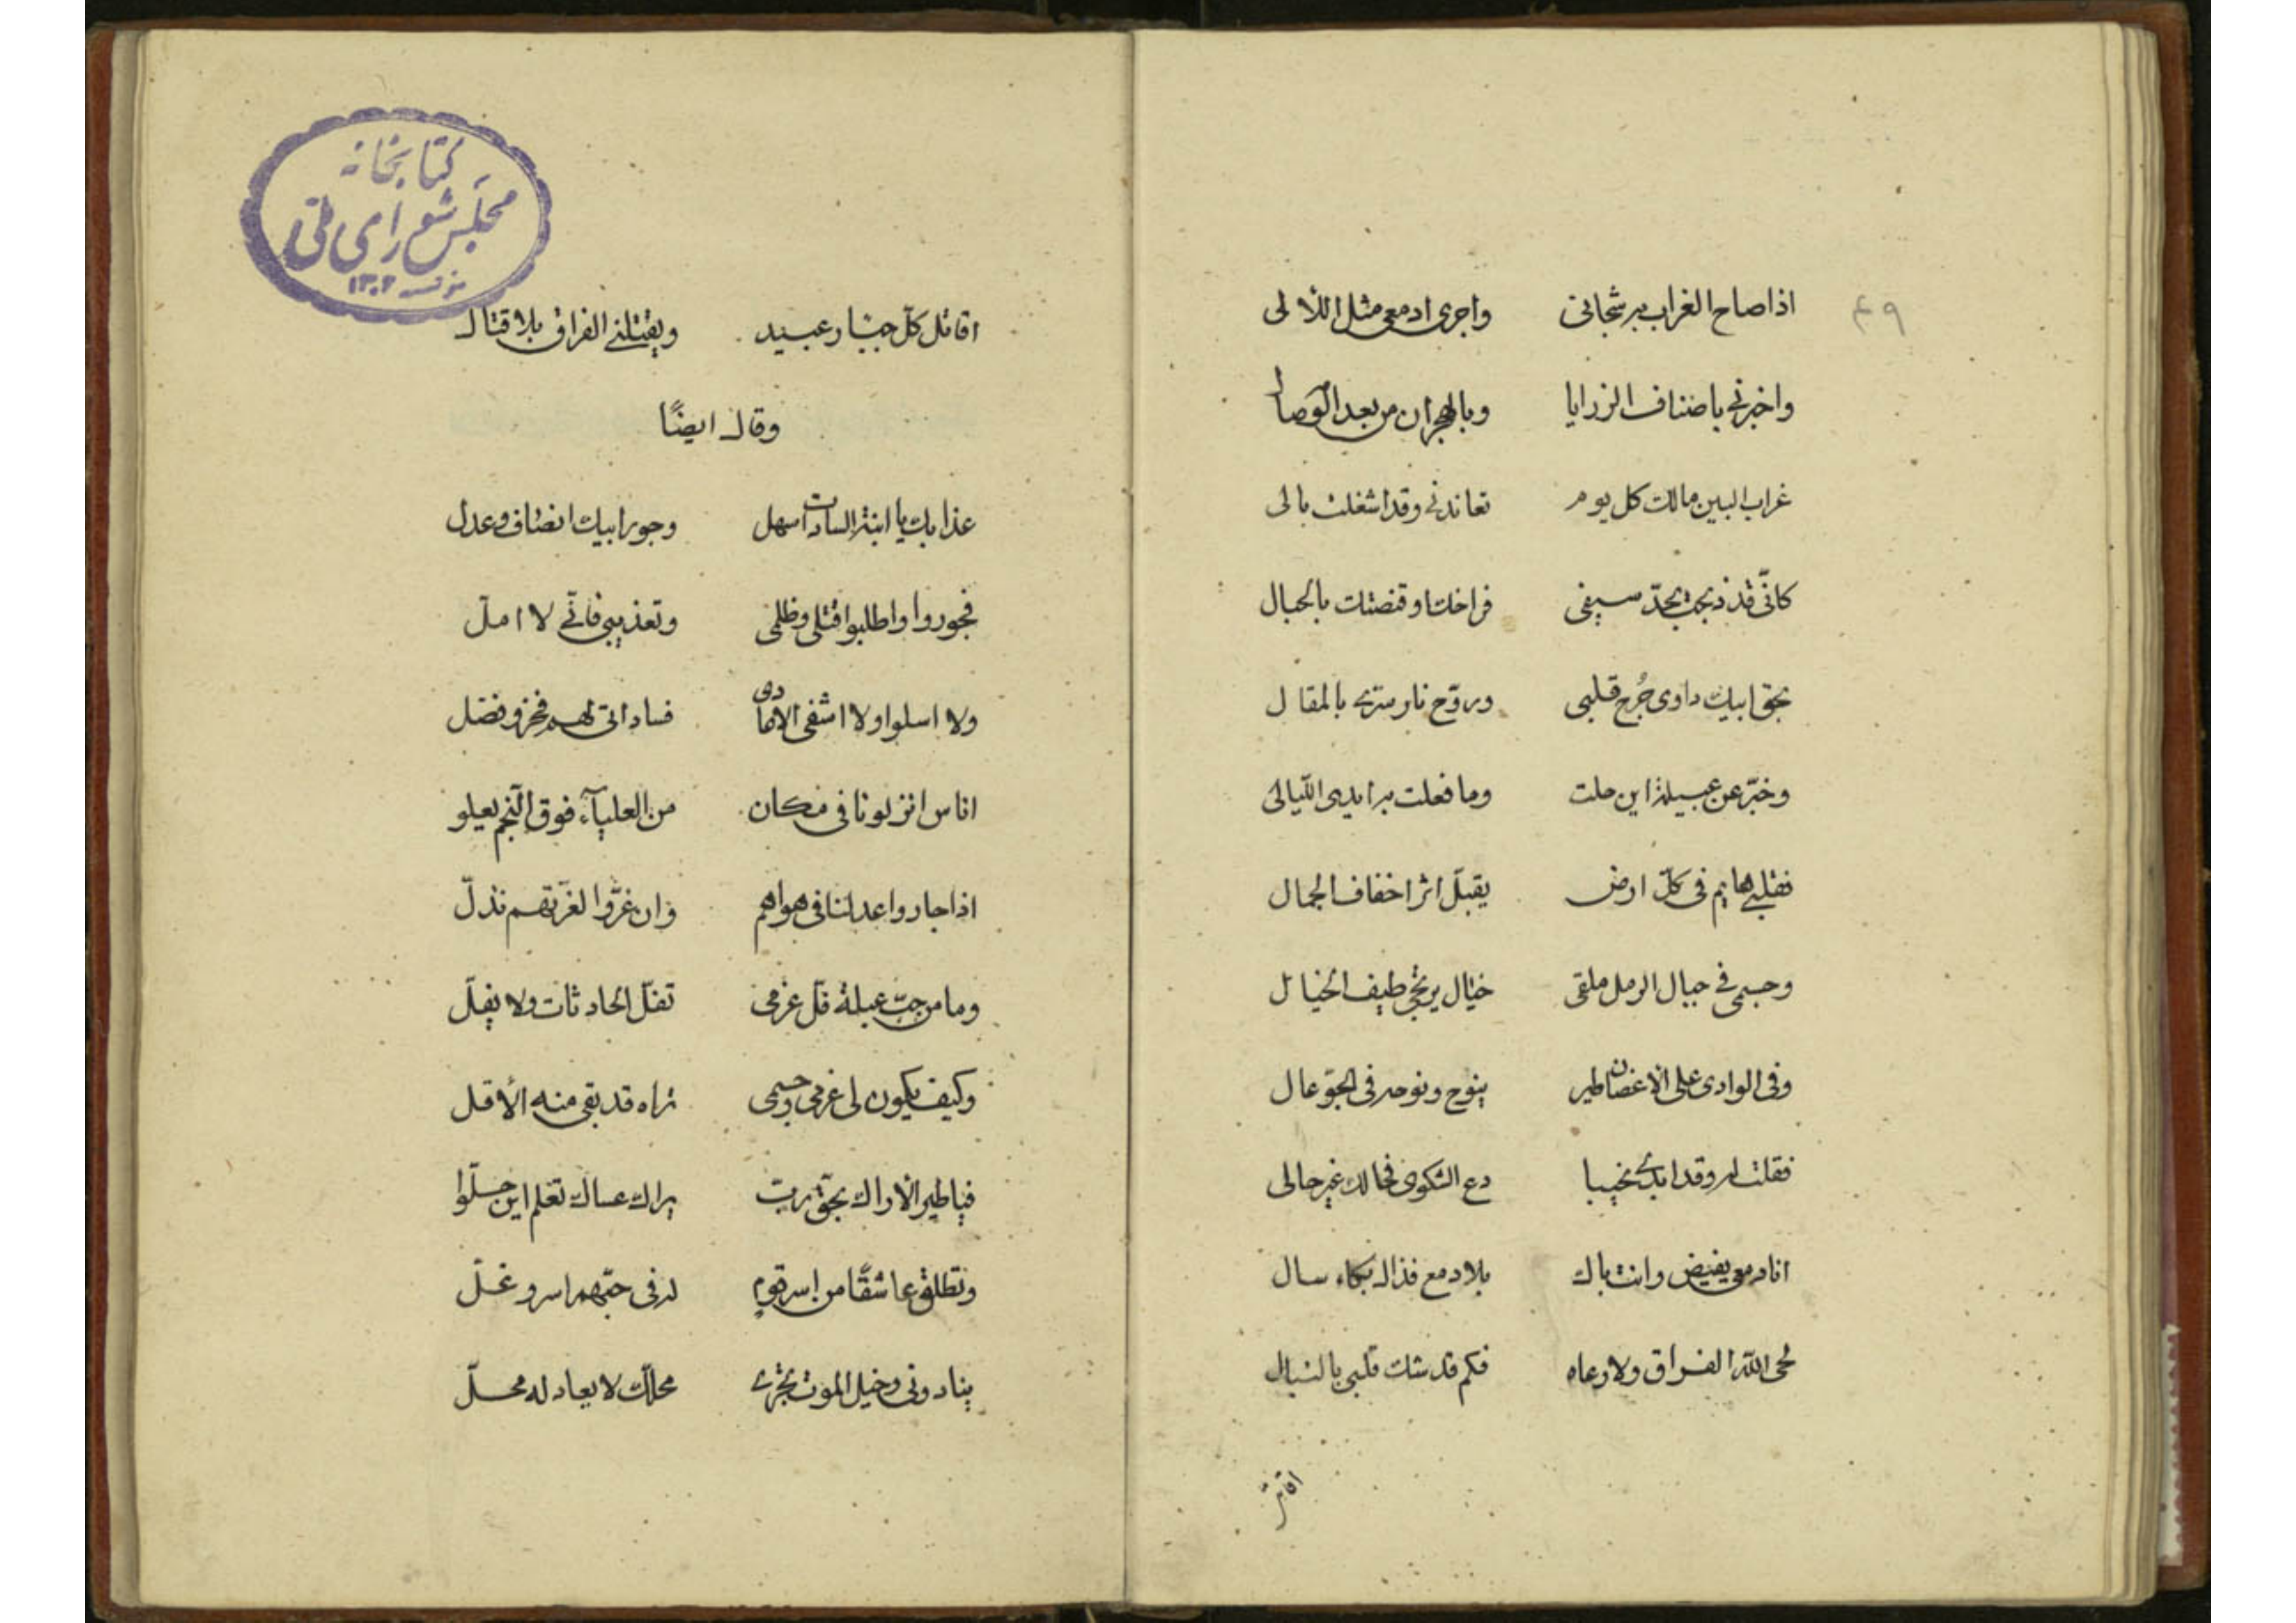 ٤٩
اذا صاح الغراب به شجانى واجرى ادمعى مثل اللآلى
واخبرنى باصناف الرزايا وبالهجران من بعد الوصال
غراب البين مالك كل يوم تعاندنى وقد اشغلت بالى
كانّى قد ذبحت بحدّ سيفى فراخك او قنصتك بالحبال
بحق ابيك داوى جُرح قلبى وروّح نار سرّى بالمقال
وخبّر عن عبيلة اين حلت وما فعلت بها ايدى اللّيالى
فقلبى هايم فى كلّ ارض يقبّل اثر اخفاف الجمال
وجسمى فى جبال الرمل ملقى خيال يرتجى طيف الخيال
وفى الوادى على الاغصان طير ينوح ونوحه فى الجوّ عال
فقلت له وقد ابدى نحيبا دع الشكوى فحالك غير حالى
انا دمعى يفيض وانت باك بلا دمع فذاك بكاء سال
لحى اللّه الفراق ولا رعاه فكم قد شك قلبى بالنبال
اقاتل
كتابخانه
مجلس شوراى ملّى
١٣٠٢
اقاتل كلّ جبّار عنيد ويقتلنى الفراق بلا قتال
وقال ايضًا
عذابك يا ابنة السادات سهل وجور ابيك انصاف وعدل
فجوروا واطلبوا قتلى وظلمى وتعذيبى فانّى لا املّ
ولا اسلوا ولا اشفى الاعادى فساداتى لهم فخر وفضل
اناس انزلونا فى مكان من العلياء فوق النّجم يعلو
اذا جاروا عدلنا فى هواهم وان عزّوا لعزّتهم نذلّ
وما من حبّ عبلة فلّ عزمى تفلّ الحادثات ولا يفلّ
وكيف يكون لى عزمى وجسمى تراه قد بقى منه الأقل
فيا طير الاراك بحقّ ربّ براك عساك تعلم اين حلّوا
وتطلق عاشقًا من اسر قوم له فى حبّهم اسر وغلّ
ينادونى وخيل الموت تجرى محلّك لا يعادله محلّ